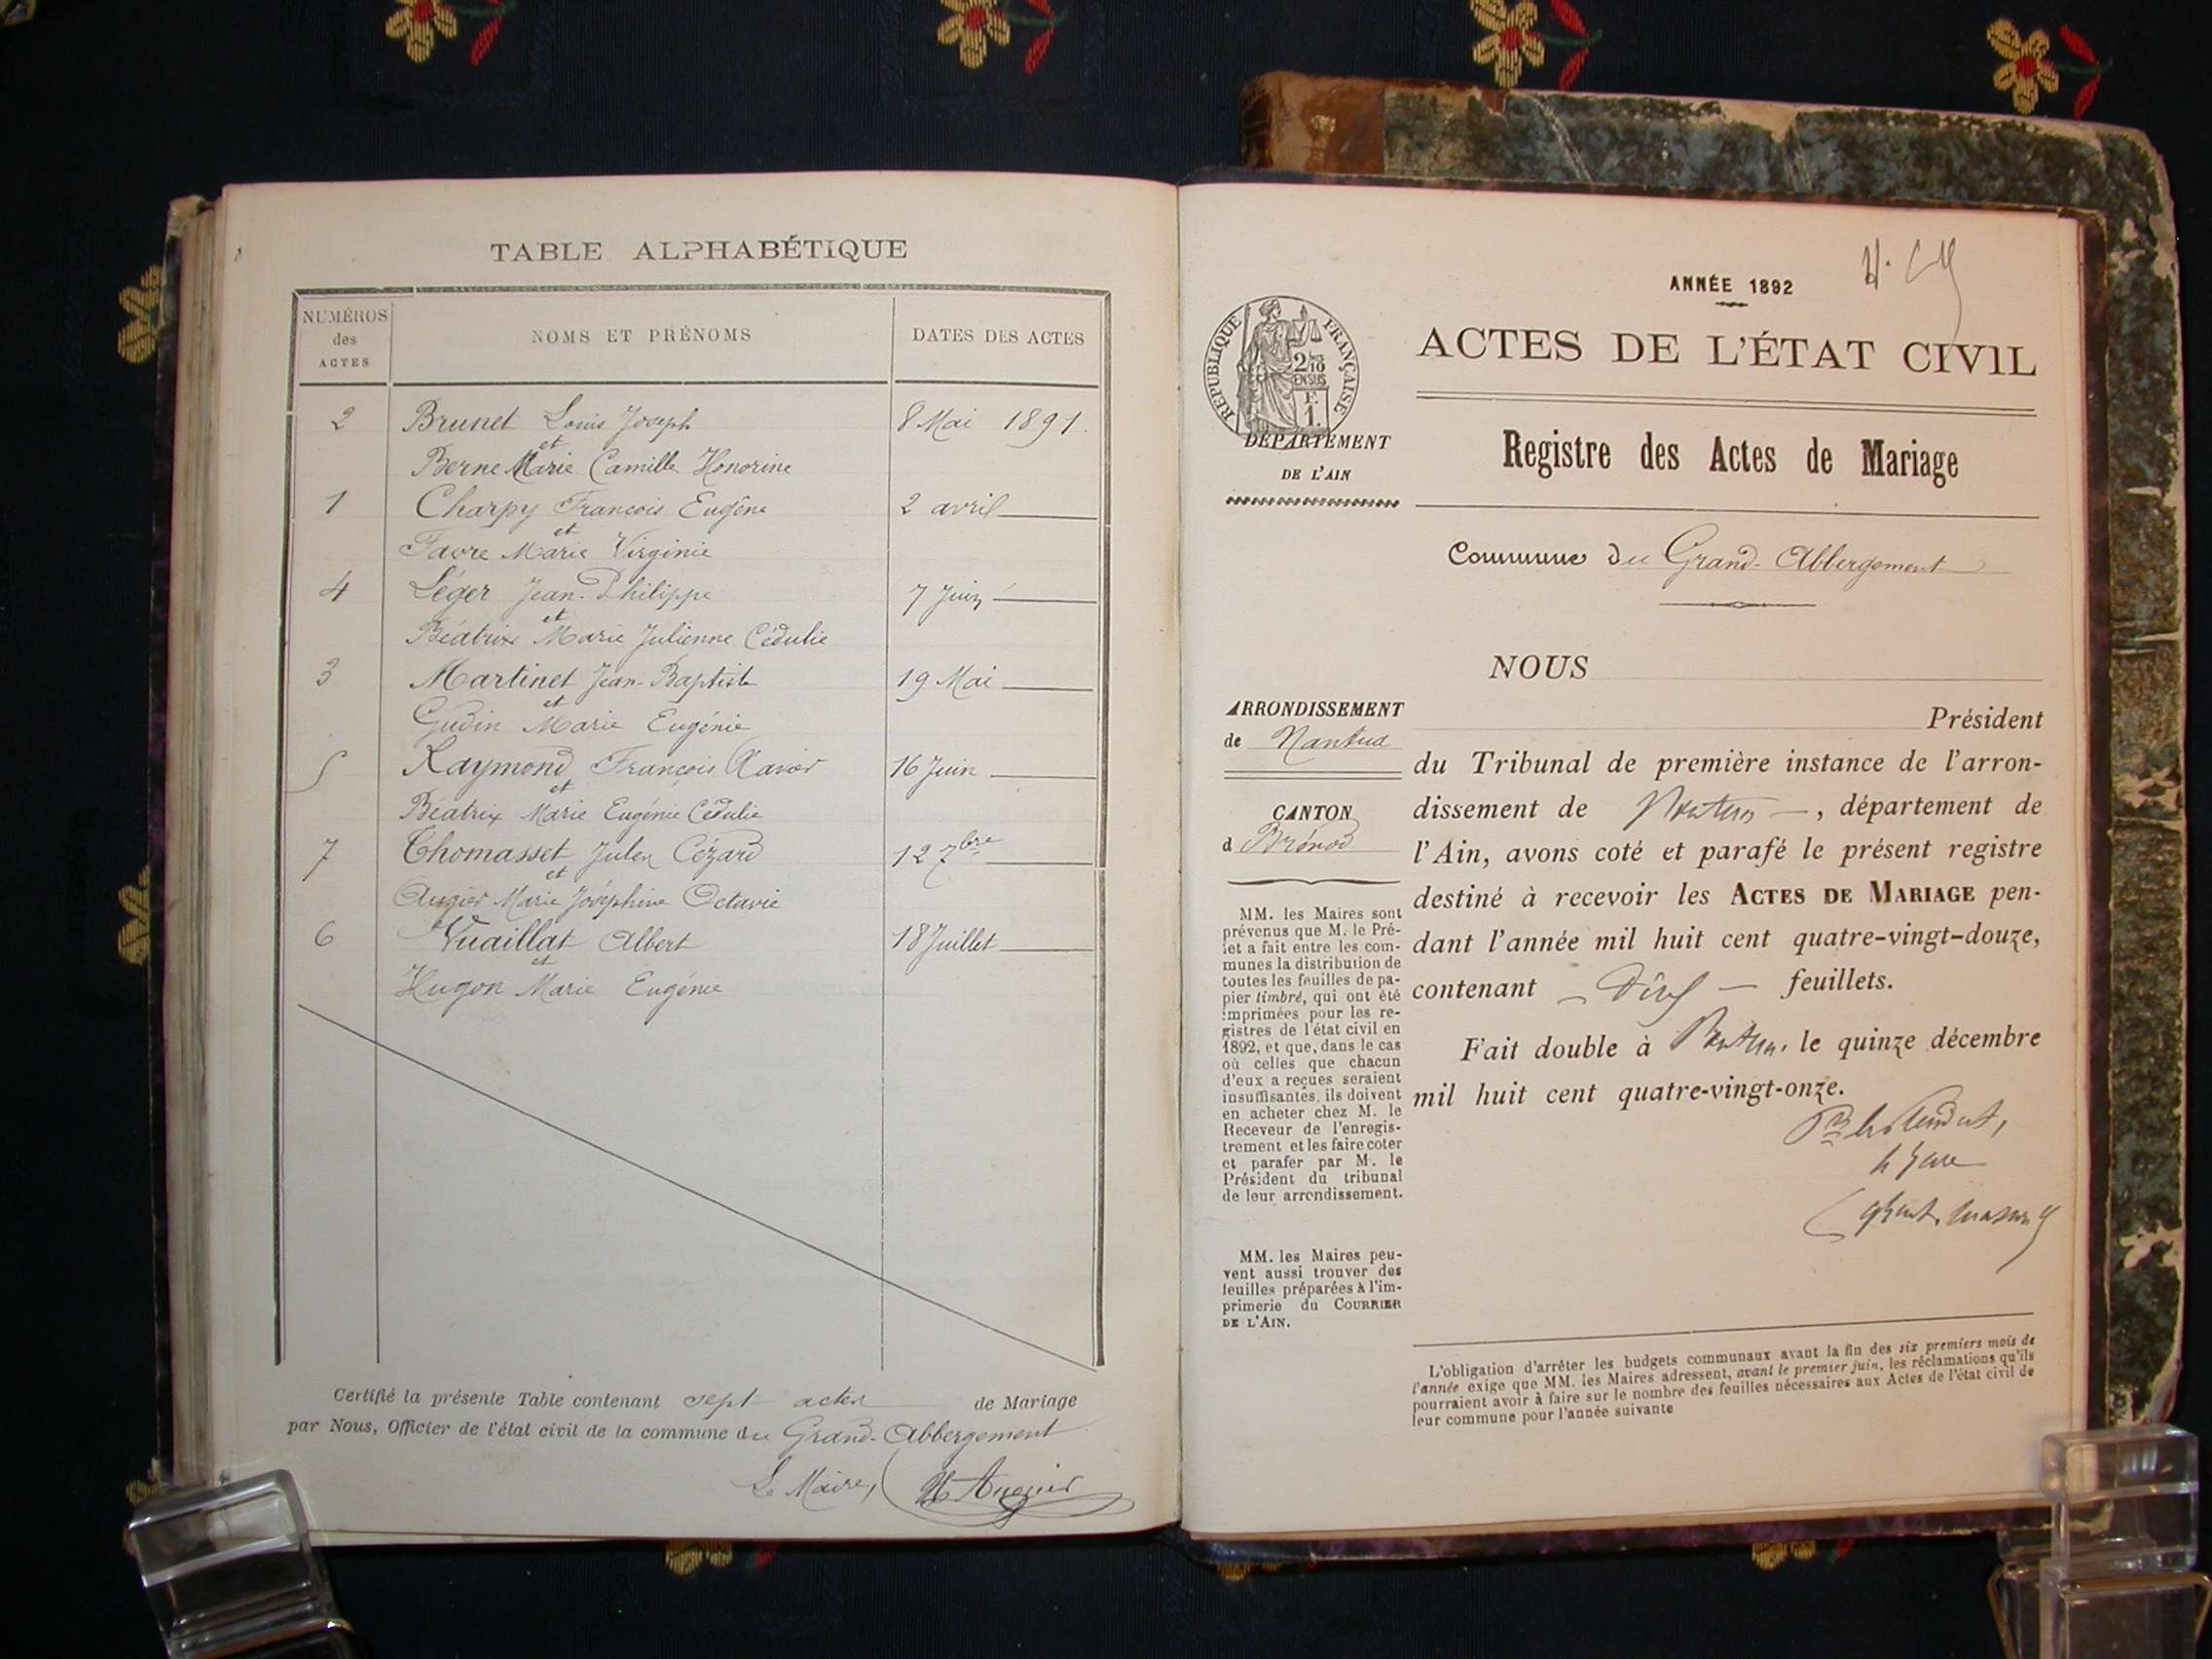 TABLE ALPHABÉTIQUE
NUMÉROS des ACTES
NOMS ET PRÉNOMS
DATES DES ACTES
2 Brunet Louis Joseph 8 Mai 1891.
et
Berne Marie Camille Honorine
1 Charpy François Eugène 2 avril
et
Favre Marie Virginie
4 Léger Jean-Philippe 7 Juin
et
Béatrix Marie Julienne Cédulie
3 Martinet Jean-Baptiste 19 Mai
et
Gudin Marie Eugénie
5 Raymond François Xavier 16 Juin
et
Béatrix Marie Eugénie Cédulie
7 Thomasset Jules Cézard 12 7bre
et
Augier Marie Joséphine Octavie
6 Vuaillat Albert 18 Juillet
et
Hugon Marie Eugénie
Certifié la présente Table contenant sept actes de Mariage
par Nous, Officier de l'état civil de la commune du Grand-Abbergement
Le Maire,
ANNÉE 1892
RÉPUBLIQUE FRANÇAISE
2/10
EN SUS
F.
1.
ACTES DE L'ÉTAT CIVIL
DÉPARTEMENT
DE L'AIN
Registre des Actes de Mariage
Commune du Grand-Abbergement
ARRONDISSEMENT
de Nantua
CANTON
d Brénod
MM. les Maires sont
prévenus que M. le Pré-
fet a fait entre les com-
munes la distribution de
toutes les feuilles de pa-
pier timbré, qui ont été
imprimées pour les re-
gistres de l'état civil en
1892, et que, dans le cas
où celles que chacun
d'eux a reçues seraient
insuffisantes, ils doivent
en acheter chez M. le
Receveur de l'enregis-
trement et les faire coter
et parafer par M. le
Président du tribunal
de leur arrondissement.
MM. les Maires peu-
vent aussi trouver des
feuilles préparées à l'im-
primerie du COURRIER
DE L'AIN.
NOUS
Président
du Tribunal de première instance de l'arron-
dissement de Nantua, département de
l'Ain, avons coté et parafé le présent registre
destiné à recevoir les ACTES DE MARIAGE pen-
dant l'année mil huit cent quatre-vingt-douze,
contenant feuillets.
Fait double à Nantua, le quinze décembre
mil huit cent quatre-vingt-onze.
L'obligation d'arrêter les budgets communaux avant la fin des six premiers mois de
l'année exige que MM. les Maires adressent, avant le premier juin, les réclamations qu'ils
pourraient avoir à faire sur le nombre des feuilles nécessaires aux Actes de l'état civil de
leur commune pour l'année suivante